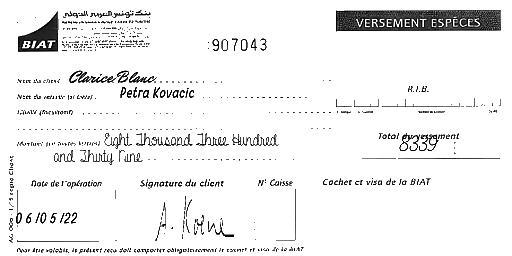 بنك تونس العربي الدولي
BIAT
VERSEMENT ESPÈCES
907043
Nom du client Clarice Blanc
Nom du remettant (si tiers) Petra Kovacic
R.I.B.
Libellé (facultatif)
Montant (en toutes lettres) Eight Thousand Three Hundred and Thirty Nine
Total du versement
8339
Date de l'opération
Signature du client
N° Caisse
Cachet et visa de la BIAT
06/05/22
A. Koene
Pour être valable, le présent reçu doit comporter obligatoirement le cachet et visa de la BIAT